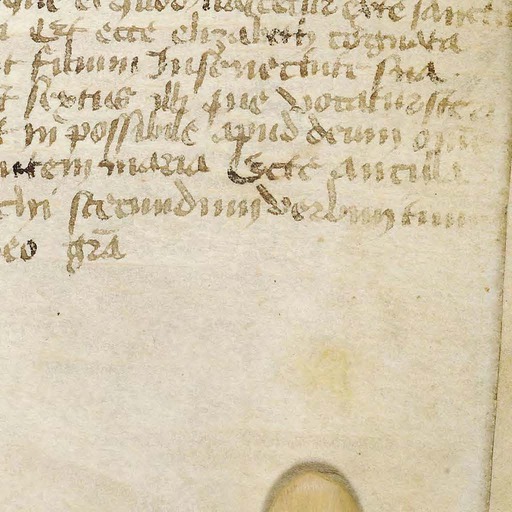 que et quod nascetur exte sanctu
Et ecce elizabeth cognata
t filium Insenectute sua
t sextus illi que vocatur ste
t in possibile apud deum omn
utem maria Ecce ancilla
chi secundum verbum tuum
eo grā